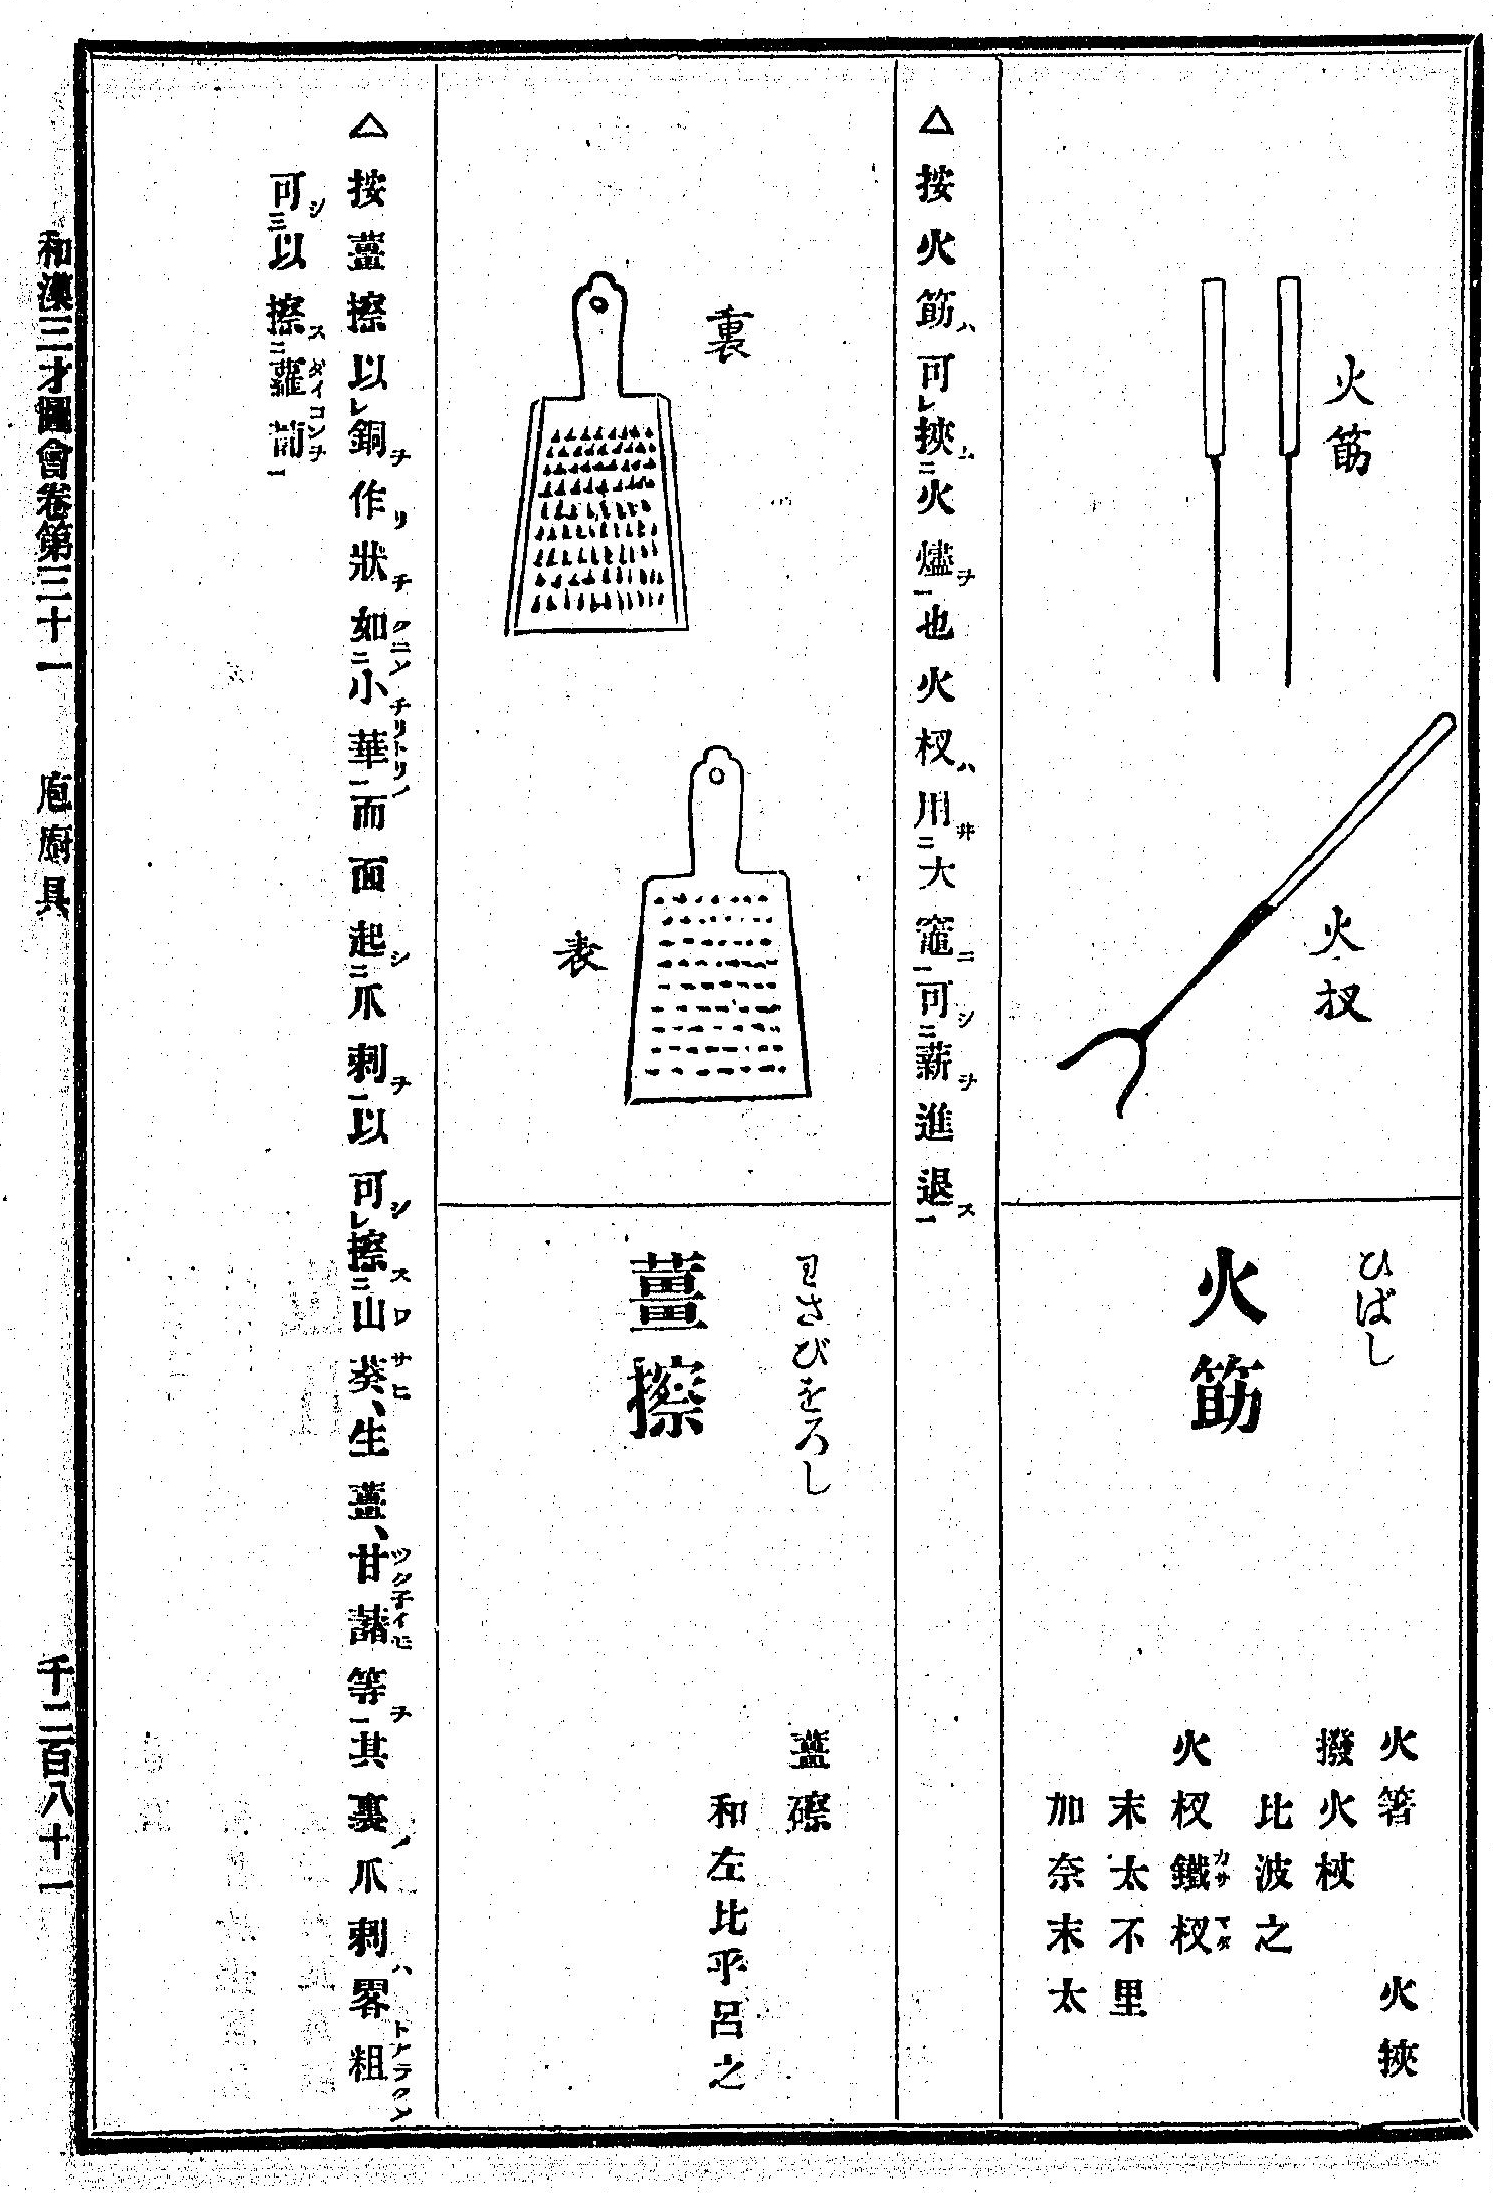 火筯
火杈
ひばし
火筯
火箸　火挾
撥火杖
比波之
火杈鐵杈カサマタ
末太不里
加奈末太
△按火筯ハ可レ挾ム二火燼ヲ一也火杈ハ用井二大竈ニ一可シ二薪ヲ進退ス一
裏
表
わさびをろし
薑擦
薑磜
和左比乎呂之
△按薑擦以レ銅ヲ作リ狀チ如クニノ二小華チリトリノ一而面起シ二爪刺ヲ一以可シレ擦ス二山葵ワサヒ、生薑、甘藷ツクネイモ等ヲ一其裏ノ爪刺ハ畧粗
可シ三以擦ス二蘿蔔ダイコンヲ一
和漢三才圖會卷第三十一　庖廚具　千二百八十一